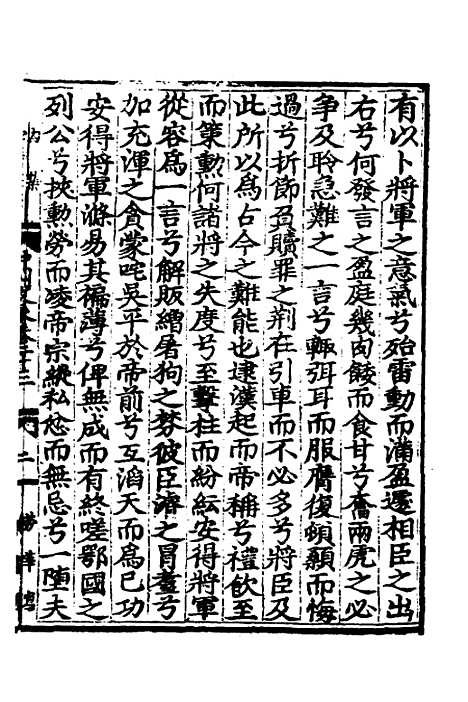 有以卜將軍之意氣兮殆雷動而滿盈還相臣之出
右兮何發言之盈庭幾肉餧而食甘兮奮兩虎之必
爭及聆急難之一言兮輙弭耳而服膺復頓顙而悔
過兮折節負贖罪之荆在引車而不必多兮將臣及
此所以為古今之難能也逮漢起而帝稱兮禮飲至
而策勳何諸將之失度兮至擊柱而紛紜安得將軍
從容為一言兮解販繒屠狗之棼彼臣濬之冒
加充渾之貪蒙咤吳平於帝前兮互滔天而為已功
安得將軍滌易其褊薄兮俾無成而有終嗟鄂國之
列公兮挾勳勞而凌帝宗縱私忿而無忌兮一墮夫
二